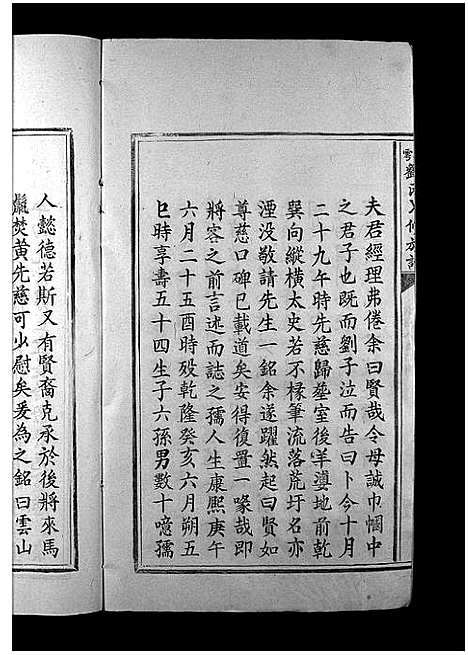 劉氏八修族譜
夫君經理弗倦余曰賢哉令母誠巾幗中
之君子也既而劉子泣而告曰卜今十月
二十九午時先慈歸塟室後羊塘地前乾
巽向縱橫太史若不椽筆流落荒圩名亦
湮没敬請先生一銘余遂躍然起曰賢如
尊慈口碑已載道矣安得復置一喙哉即
將客之前言述而誌之孺人生康熙庚午
六月二十五酉時歿乾隆癸亥六月朔五
巳時享壽五十四生子六孫男數十噫孺
人懿德若斯又有賢裔克承於後將來馬
鬛焚黄先慈可少慰矣爰為之銘曰雲山